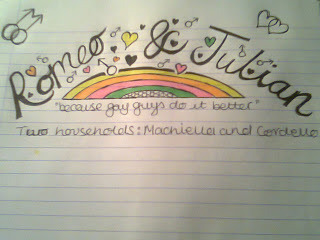 Romeo & Julian
"because gay guys do it better"
Two households: Machiella and Cordello